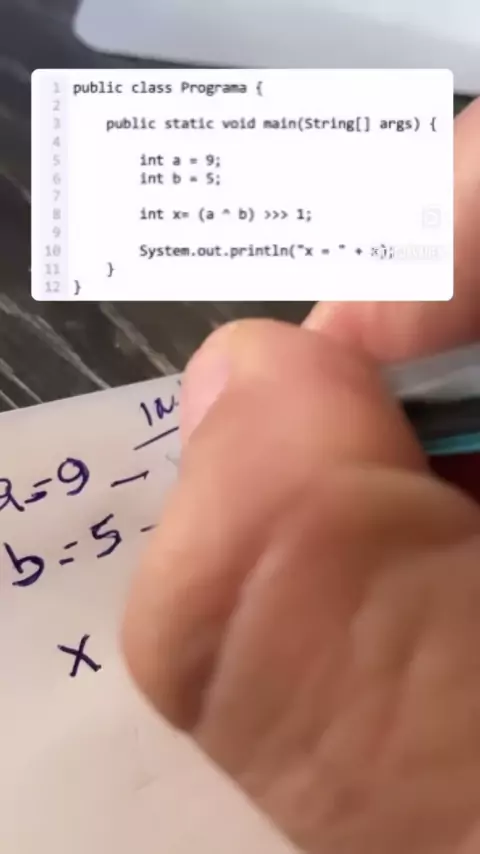 1 public class Programa {
2
3 public static void main(String[] args) {
4
5 int a = 9;
6 int b = 5;
7
8 int x= (a ^ b) >>> 1;
9
10 System.out.println("x = " +
11 }
12 }
a=9 -
b=5 -
x